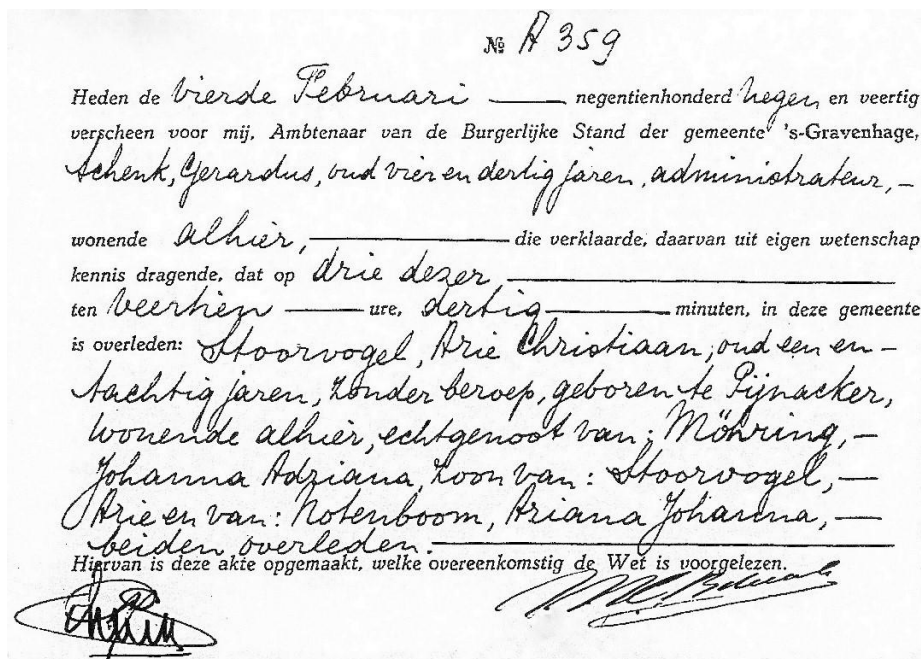 № A 359
Heden de vierde Februari negentienhonderd negen en veertig
verscheen voor mij, Ambtenaar van de Burgerlijke Stand der gemeente 's-Gravenhage,
Schenk, Gerardus, oud vier en dertig jaren, administrateur, —
wonende alhier, die verklaarde, daarvan uit eigen wetenschap
kennis dragende, dat op drie dezer,
ten veertien ure, dertig minuten, in deze gemeente
is overleden: Stoorvogel, Arie Christiaan, oud een en —
tachtig jaren, zonder beroep, geboren te Pijnacker,
wonende alhier, echtgenoot van: Möhring, —
Johanna Adriana, zoon van: Stoorvogel, —
Arie en van: Notenboom, Ariana Johanna, —
beiden overleden.
Hiervan is deze akte opgemaakt, welke overeenkomstig de Wet is voorgelezen.